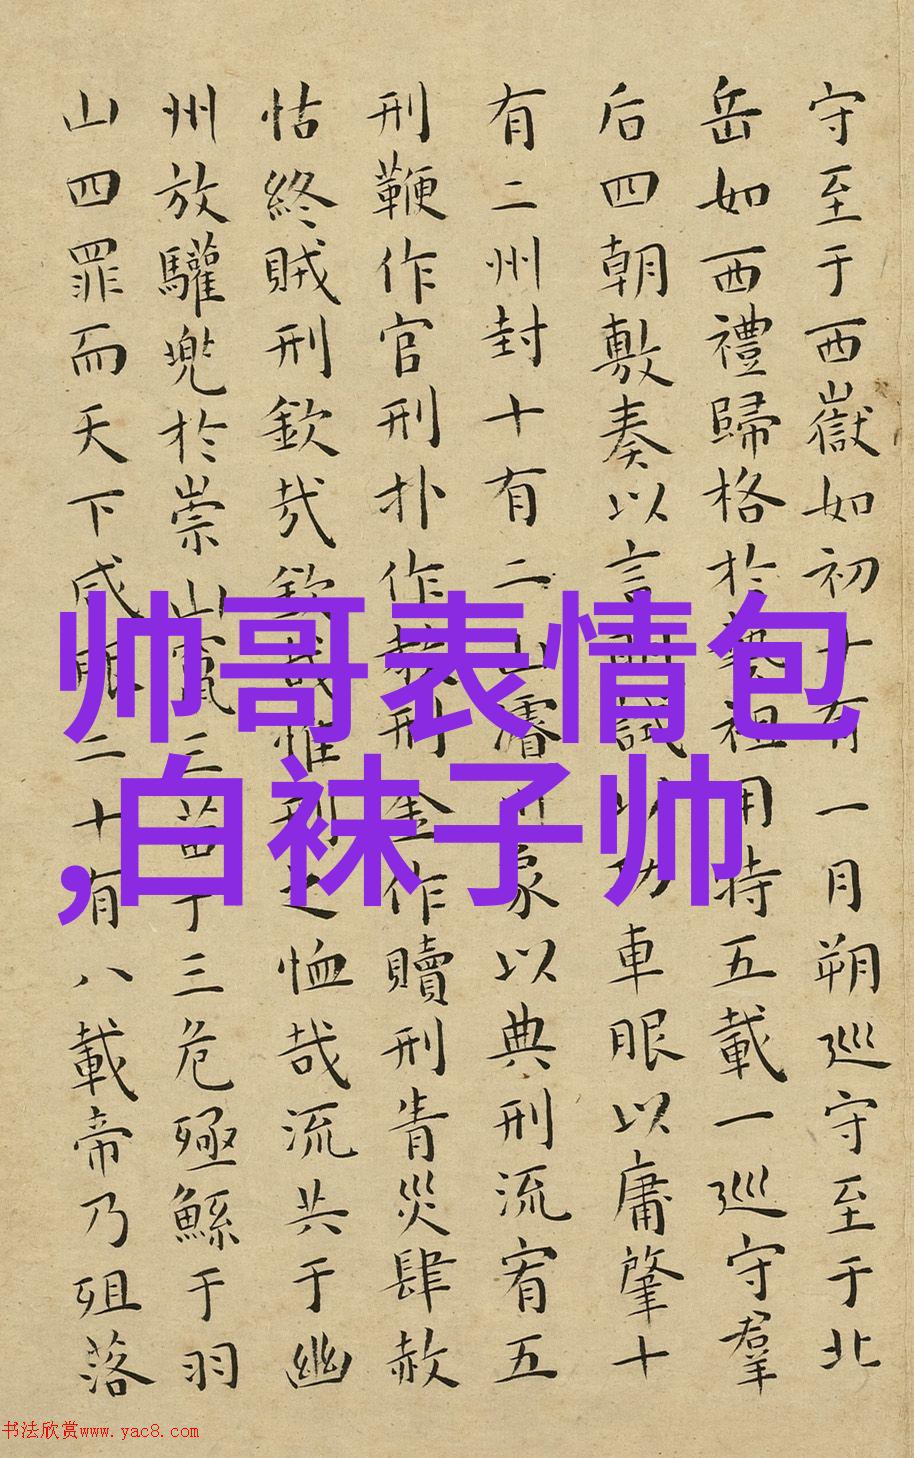 守至于西嶽如初十有一月朔巡守至于北
岳如西禮歸格於藝祖用特五載一巡守羣
后四朝敷奏以言明試以功車眼以庸肇十
有二州封十有二山濬川象以典刑流宥五
刑鞭作官刑扑作教刑金作贖刑眚災肆赦
怙終賊刑欽哉欽哉惟刑之恤哉流共于幽
州放驩兜於崇山竄三苗于三危殛鯀于羽
山四罪而天下咸服二十有八載帝乃殂落
帅哥表情包
,白袜子帅
书法欣赏www.yac8.com